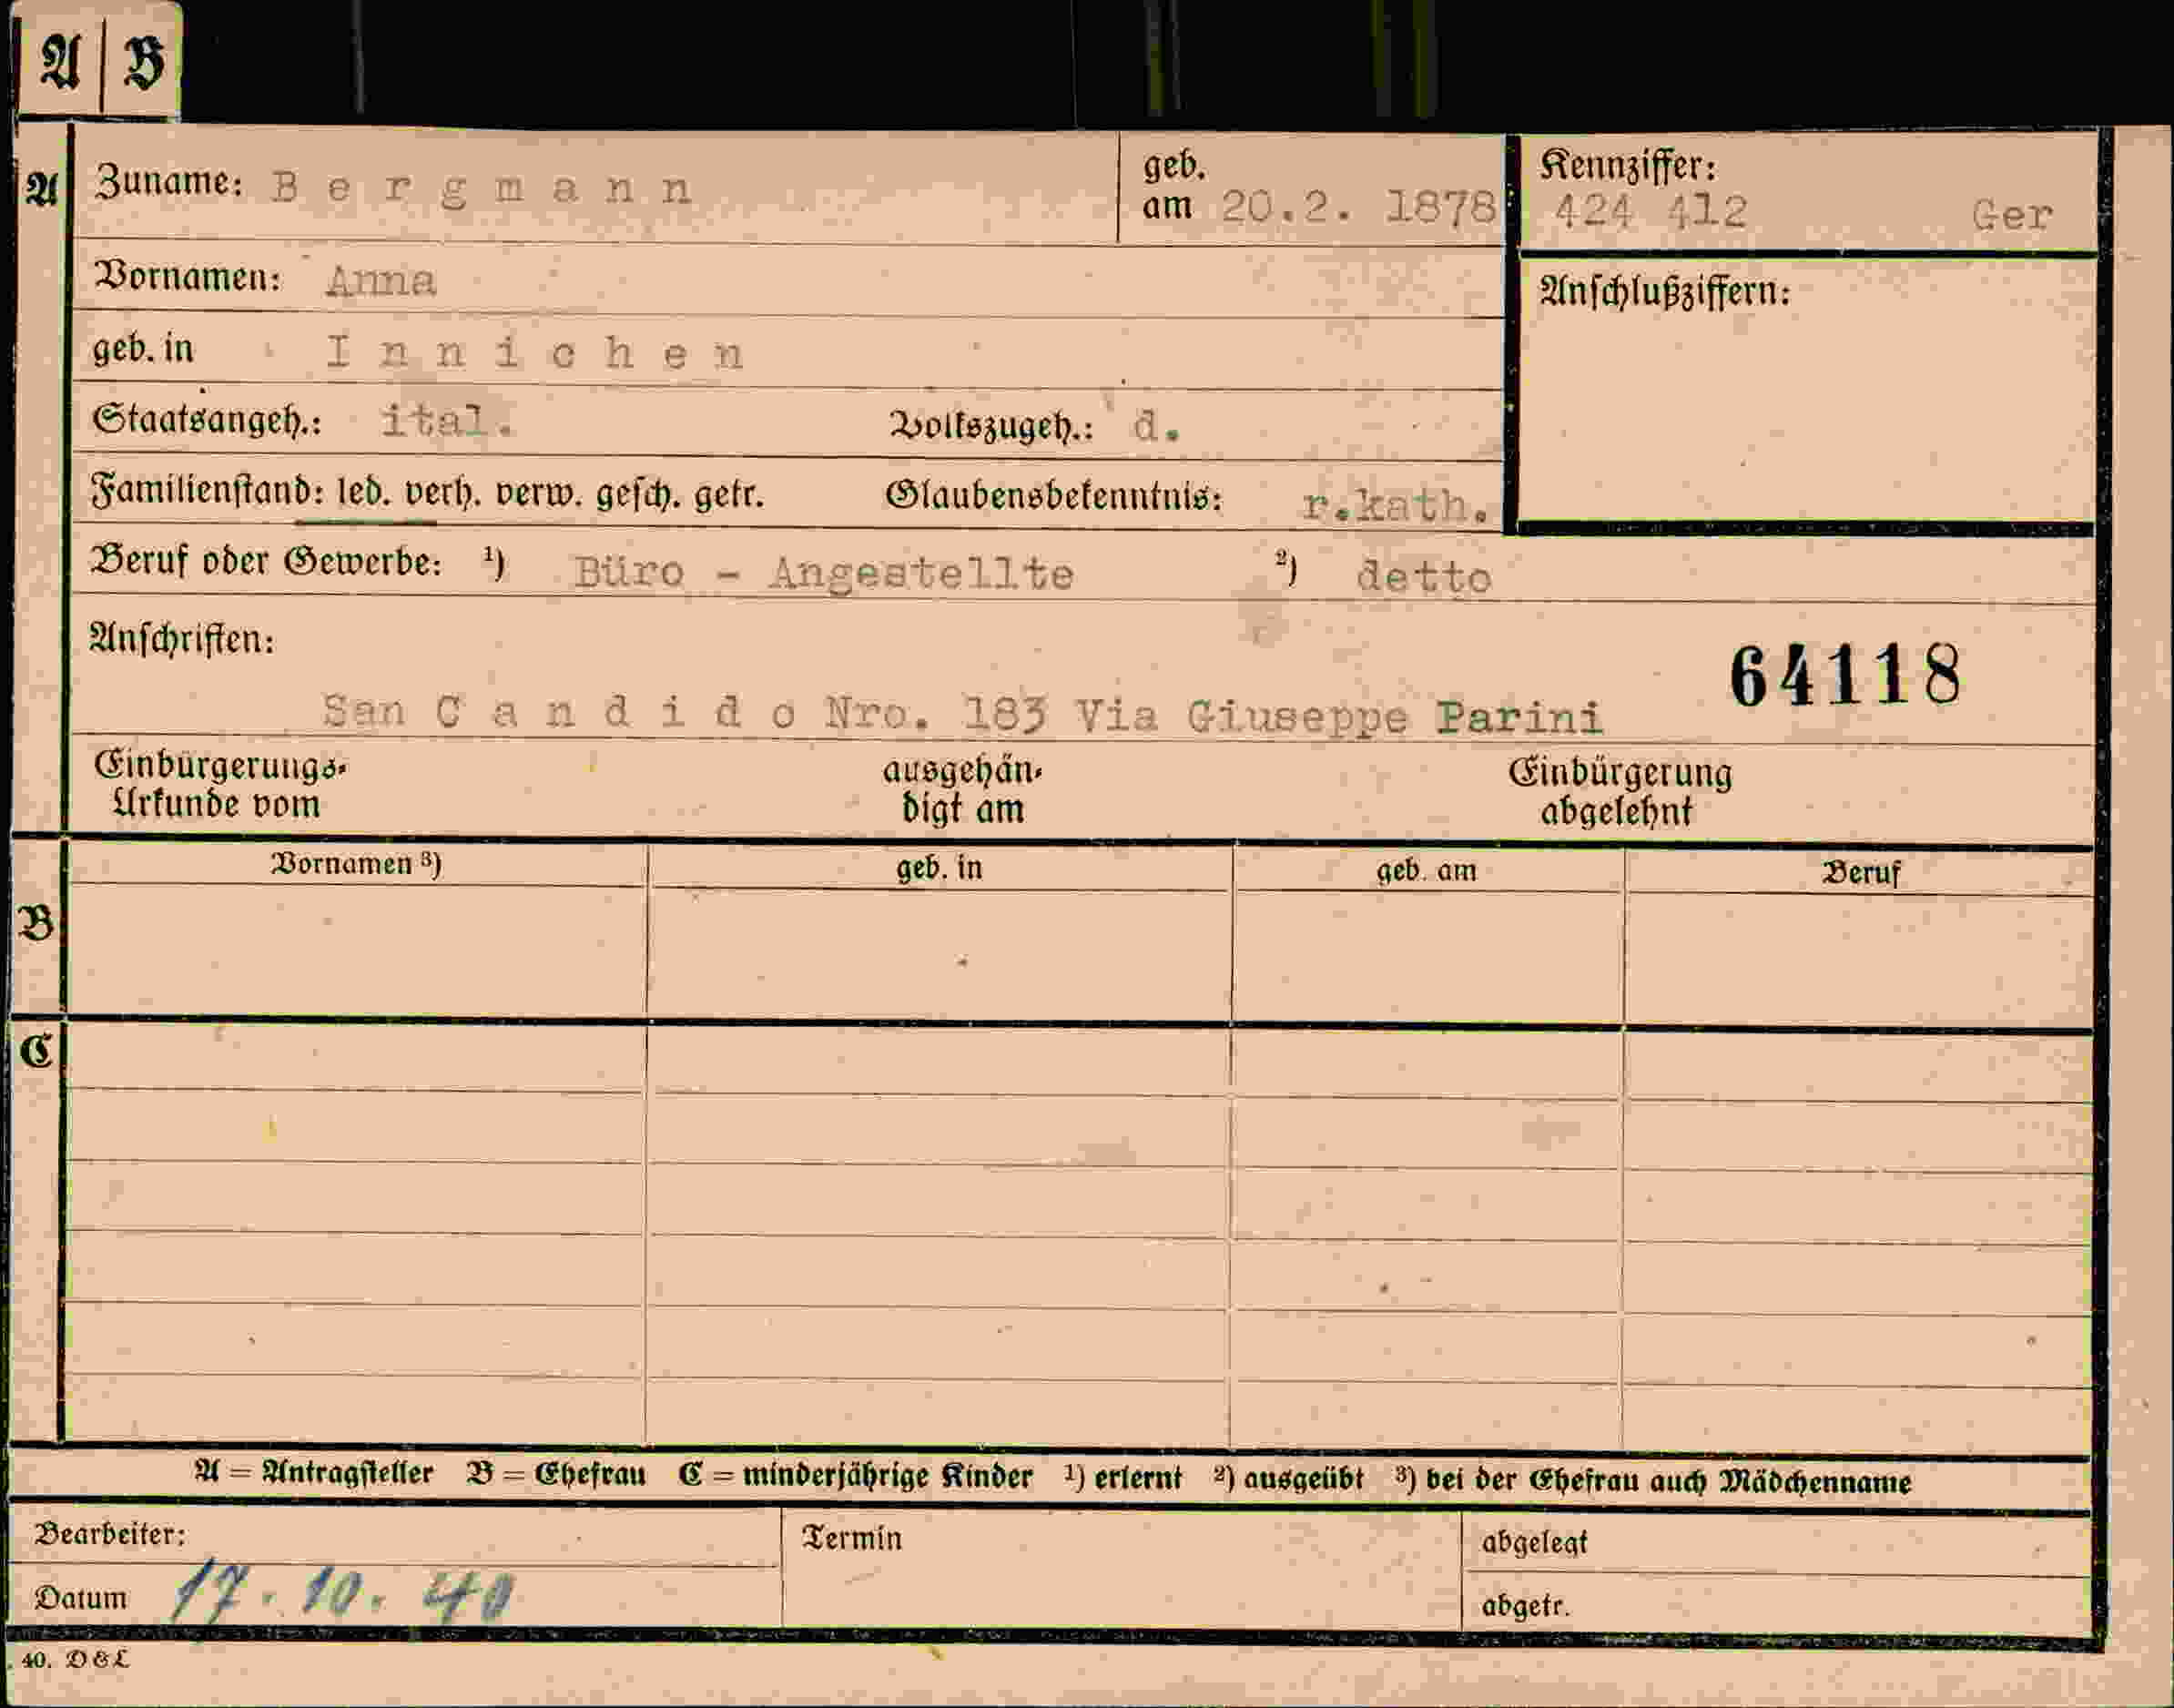 A B
A Zuname: Bergmann geb. am 20.2. 1878 Kennziffer: 424 412 Ger
Vornamen: Anna Anschlußziffern:
geb. in Innichen
Staatsangeh.: ital. Volkszugeh.: d.
Familienstand: led. verh. verw. gesch. getr. Glaubensbekenntnis: r.kath.
Beruf oder Gewerbe: ¹) Büro - Angestellte ²) detto
Anschriften:
64118
San Candido Nro. 183 Via Giuseppe Parini
Einbürgerungs- ausgehän- Einbürgerung
Urkunde vom digt am abgelehnt
Vornamen ³) geb. in geb. am Beruf
B
C
A = Antragsteller B = Ehefrau C = minderjährige Kinder ¹) erlernt ²) ausgeübt ³) bei der Ehefrau auch Mädchenname
Bearbeiter: Termin abgelegt
Datum 17. 10. 40 abgetr.
40. D & L